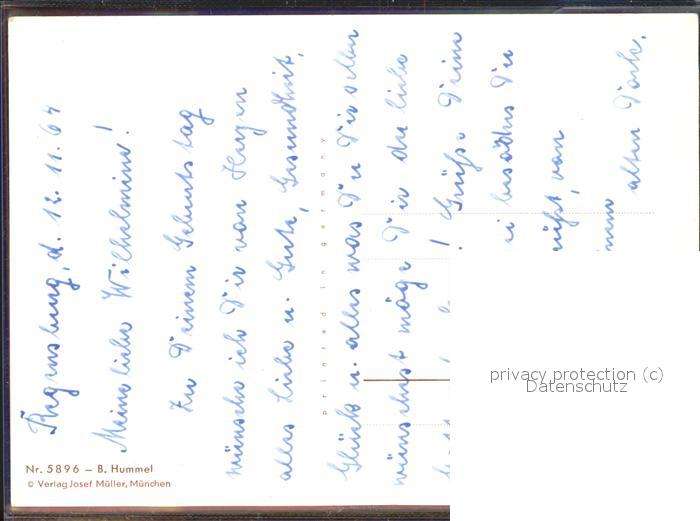 Regensburg, d. 12. 11. 64
Meine liebe Wilhelmine!
Zu Deinem Geburtstag
wünsche ich Dir von Herzen
alles Liebe u. Gute, Gesundheit,
Glück u. alles was Du Dir selber
wünschst möge Dir der liebe
Grüße Deine
besonders Du
von
alten
printed in germany
Nr. 5896 – B. Hummel
© Verlag Josef Müller, München
privacy protection (c)
Datenschutz